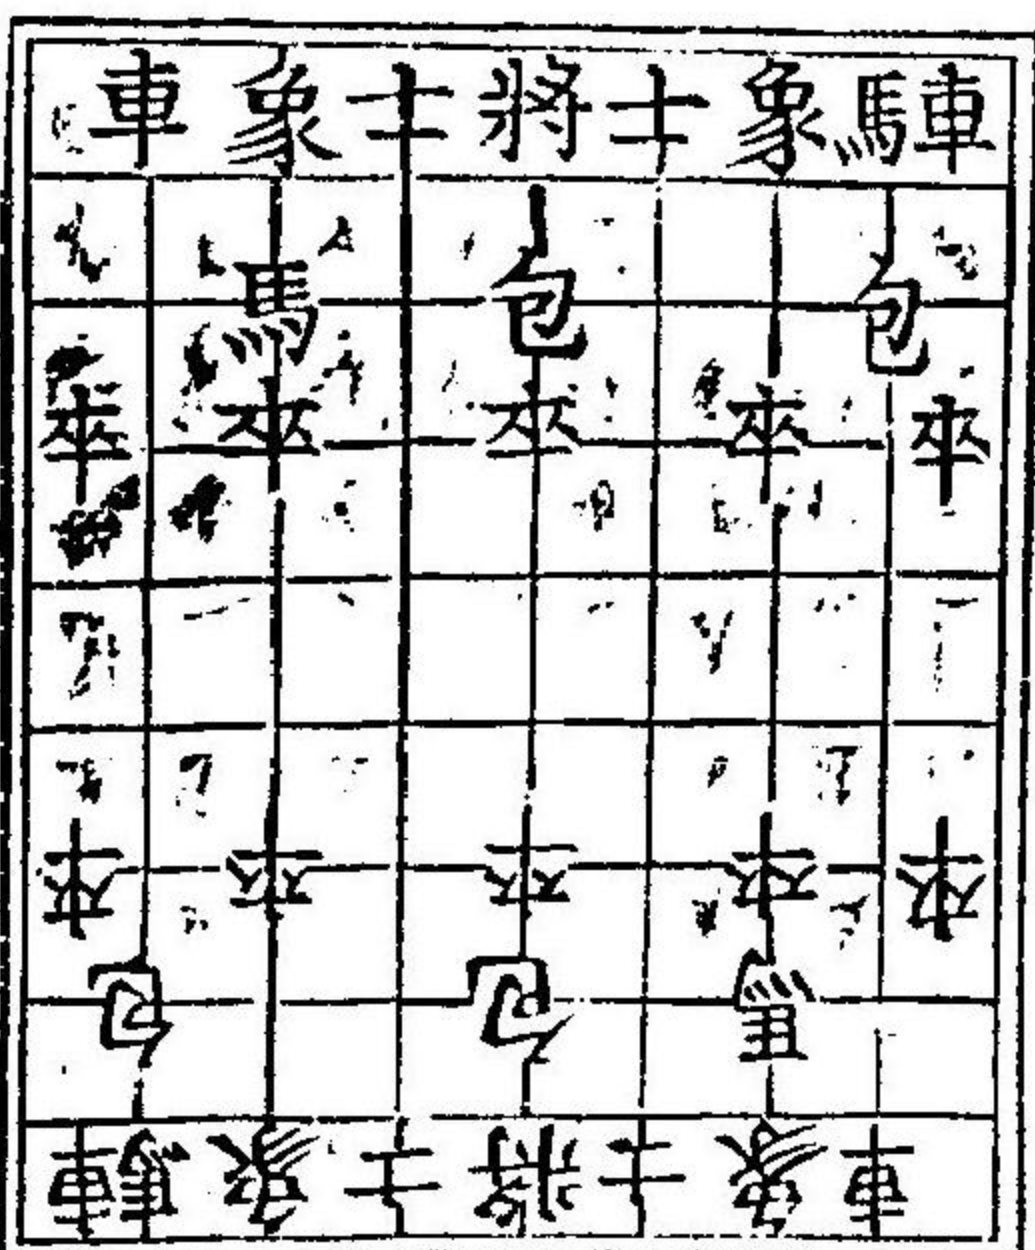 車 象 士 將 士 象 馬 車
馬 包 包
卒 卒 卒 卒 卒
卒 卒 卒 卒 卒
包 包 馬
車 馬 象 士 將 士 象 車